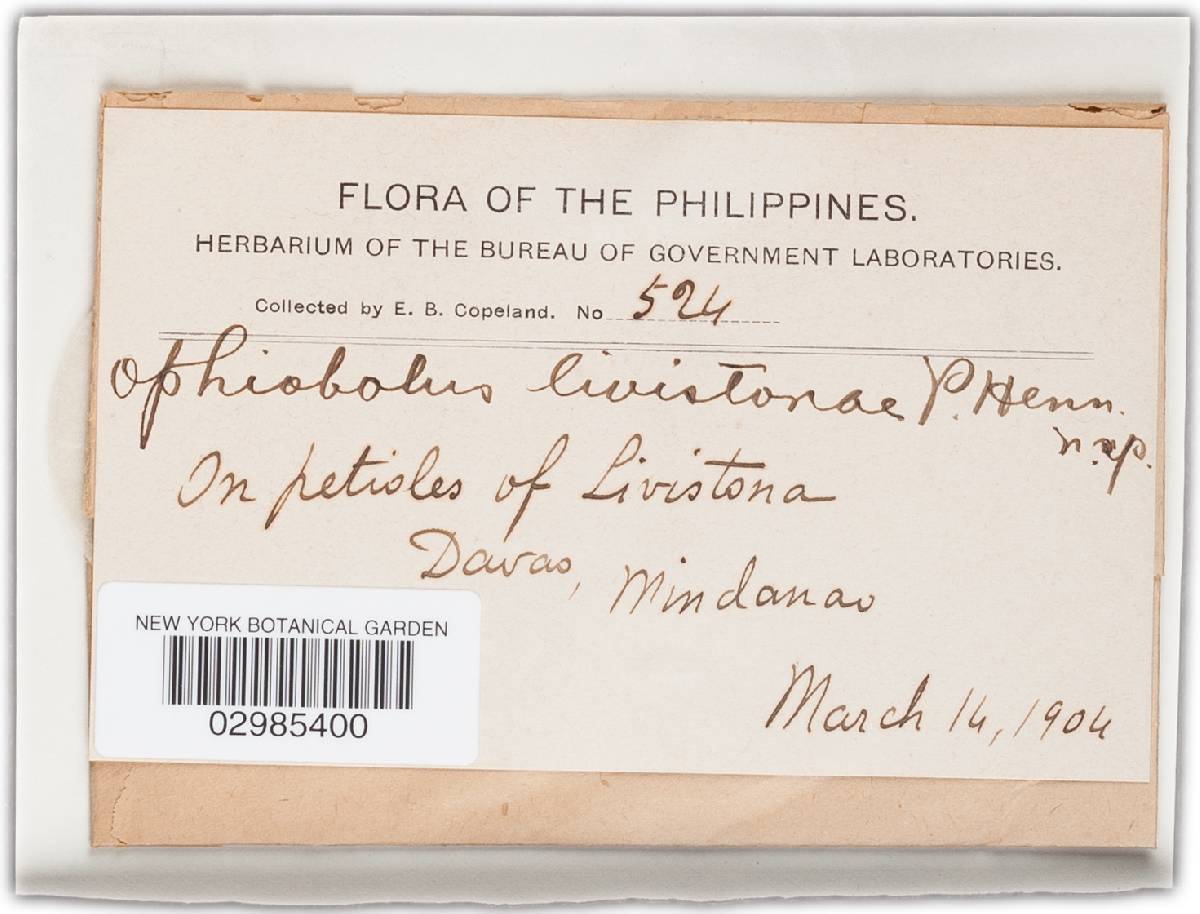 FLORA OF THE PHILIPPINES.
HERBARIUM OF THE BUREAU OF GOVERNMENT LABORATORIES.
Collected by E. B. Copeland. No 524
Ophiobolus livistonae P. Henn.
n. sp.
On petioles of Livistona
Davao, Mindanao
March 14, 1904
NEW YORK BOTANICAL GARDEN
02985400